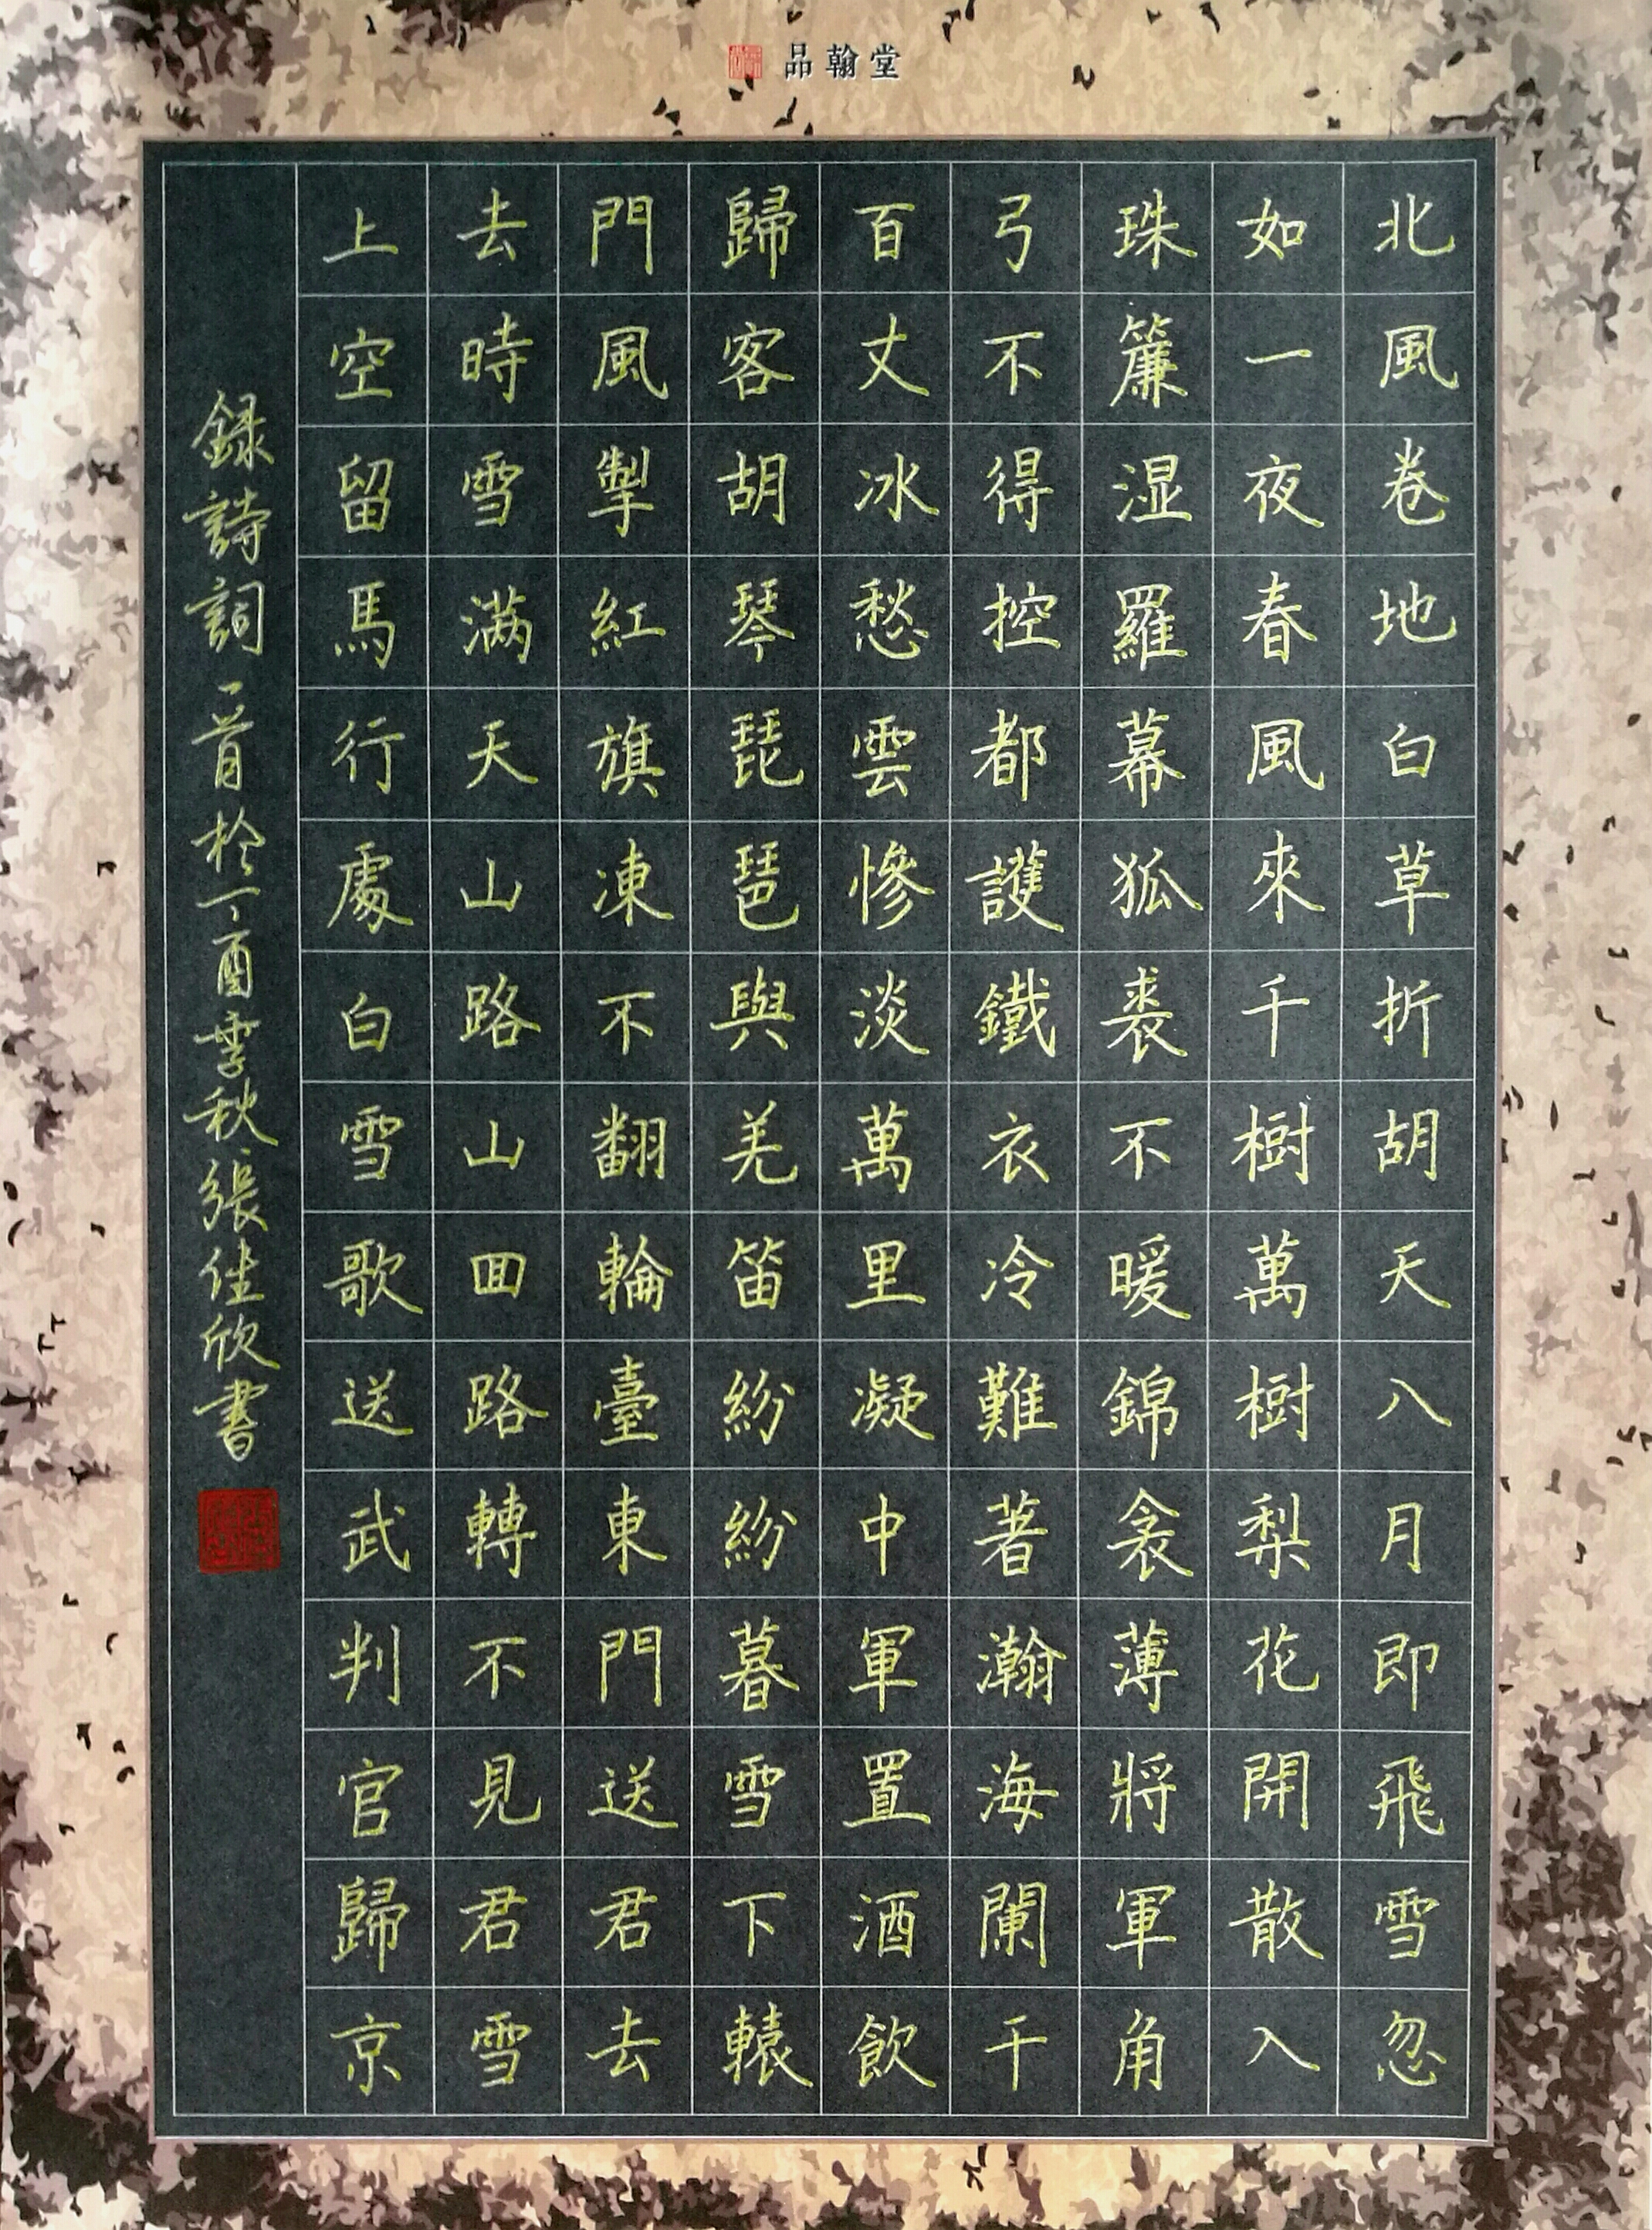 品翰堂
北風卷地白草折胡天八月即飛雪忽
如一夜春風來千樹萬樹梨花開散入
珠簾湿羅幕狐裘不暖錦衾薄將軍角
弓不得控都護鐵衣冷難著瀚海闌干
百丈冰愁雲慘淡萬里凝中軍置酒飲
歸客胡琴琵琶與羌笛紛紛暮雪下轅
門風掣紅旗凍不翻輪臺東門送君去
去時雪满天山路山回路轉不見君雪
上空留馬行處白雪歌送武判官歸京
録詩詞一首於丁酉季秋張佳欣書